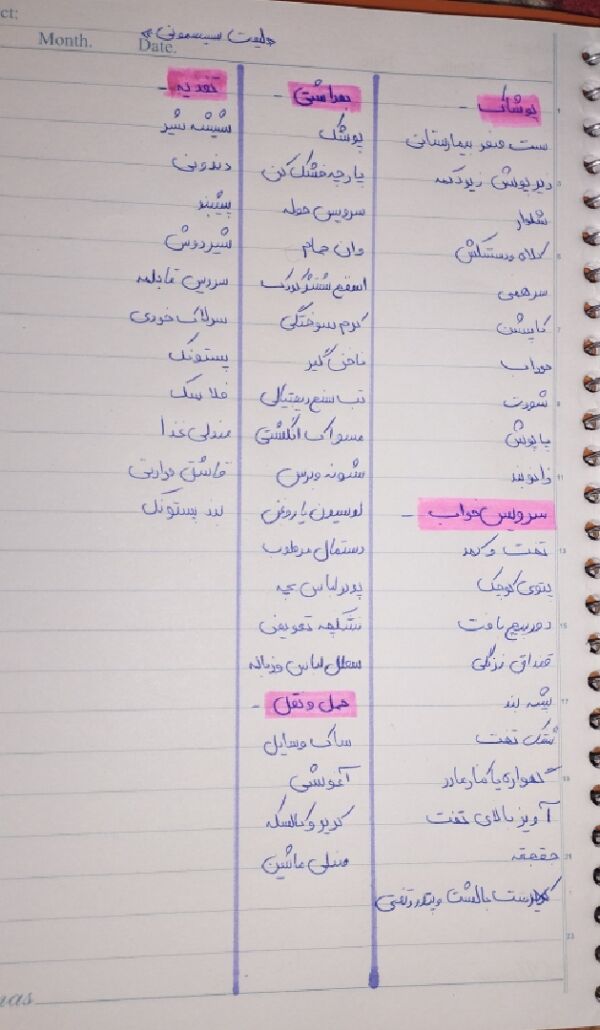 ct:
Month.
Date.
«لیست سیسمونی»
پوشاک -
ست صفر بیمارستانی
زیرپوش زیردکمه
شلوار
کلاه و دستکش
سرهمی
کاپشن
جوراب
شورت
پاپوش
زانوبند
سرویس خواب -
تخت و کمد
پتوی کوچک
دورپیچ بافت
قنداق زنگی
پشه بند
تشک تخت
گهواره یا کنار مادر
آویز بالای تخت
جغجغه
ست بالشت و پتو و تشک
بهداشتی -
پوشک
پارچه خشک کن
سرویس حوله
وان حمام
اسفنج شستشو کودک
کرم سوختگی
ناخن گیر
تب سنج دیجیتالی
مسواک انگشتی
شونه و برس
لوسیون یا روغن
دستمال مرطوب
پودر لباس بچه
تشکچه تعویض
سطل لباس و زباله
حمل و نقل -
ساک وسایل
آغوشی
کریر و کالسکه
صندلی ماشین
تغذیه -
شیشه شیر
دندونی
پیشبند
شیردوش
سرویس قابلمه
سرلاک خوری
پستونک
فلاسک
صندلی غذا
قاشق حرارتی
بند پستونک